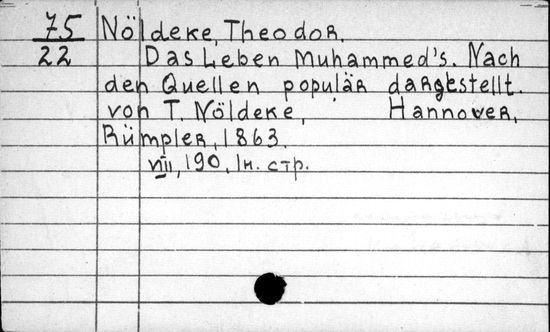 75 Nöldeke, Theodor.
22 Das Leben Muhammed's. Nach
den Quellen populär dargestellt.
von T. Nöldeke, Hannover,
Rümpler, 1863.
VIII, 190, 1н. стр.